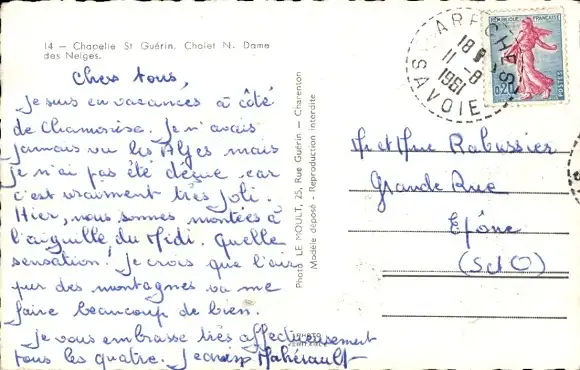 14 — Chapelle St Guérin. Chalet N. Dame
des Neiges.
Chers tous,
je suis en vacances à côté
de Chamonix. Je n'avais
jamais vu les Alpes mais
je n'ai pas été déçue car
c'est vraiment très joli.
Hier, nous sommes montées à
l'aiguille du Midi. Quelle
sensation! Je crois que l'air
pur des montagnes va me
faire beaucoup de bien.
Je vous embrasse très affectueusement
tous les quatre.
Photo LE MOULT, 25, Rue Guérin — Charenton
Modèle déposé - Reproduction interdite
PHOTO
ARECHES
18 H
11-8
1961
SAVOIE
REPUBLIQUE FRANÇAISE
0,20
POSTES
M et Mme Rabussier
Grande Rue
Epône
(S et O)